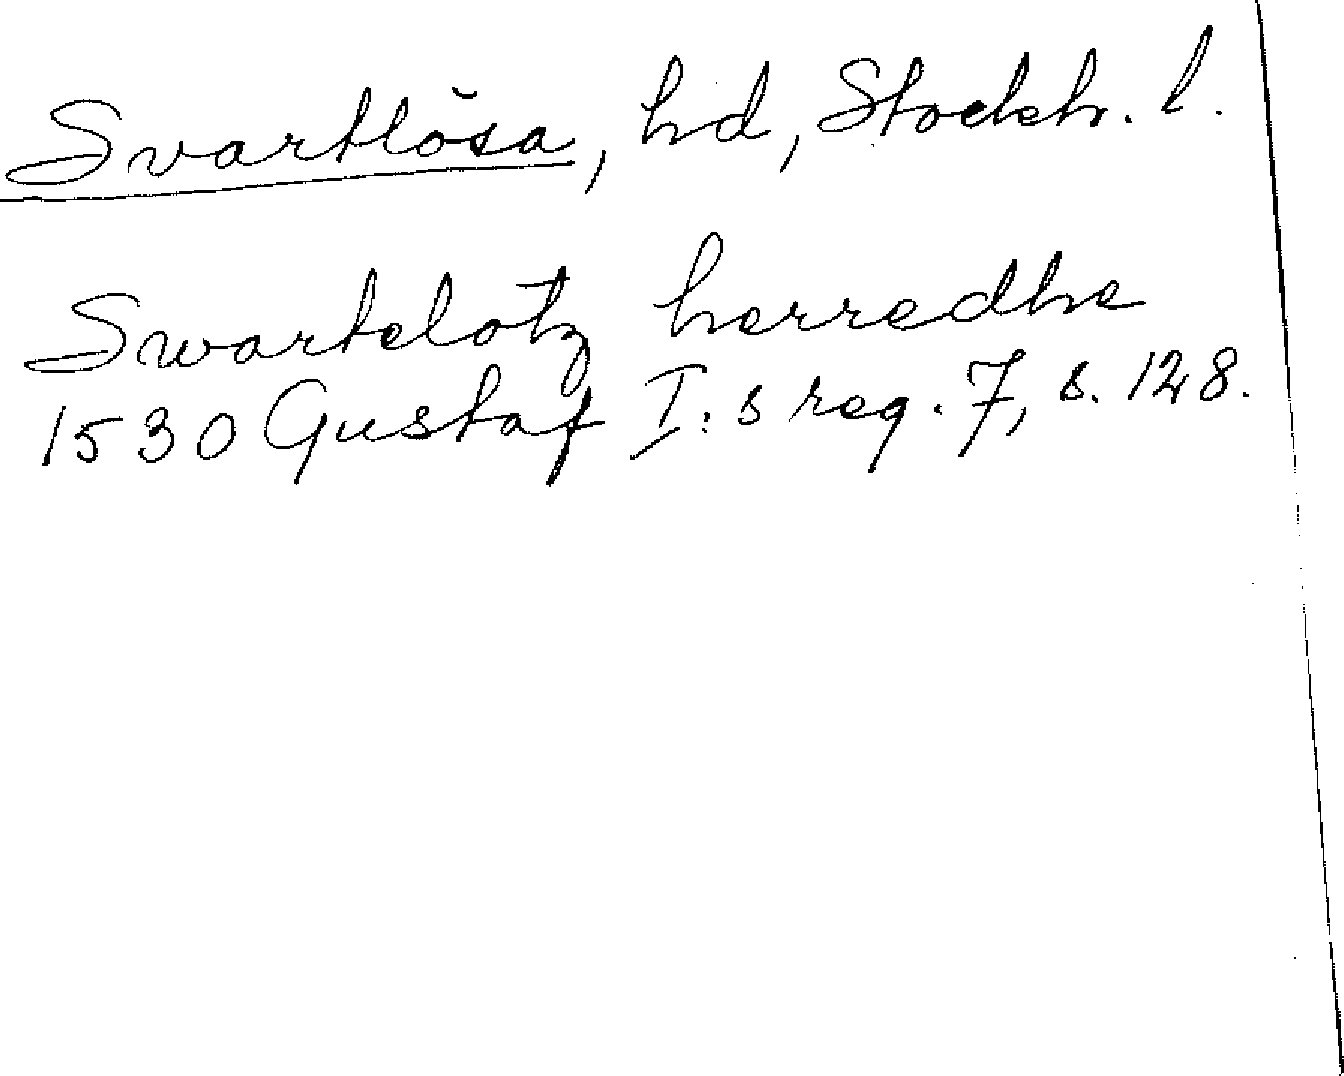 Svartlösa, hd, Stockh. l.
Swartelotz herredhe
1530 Gustaf I:s reg. 7, s. 128.